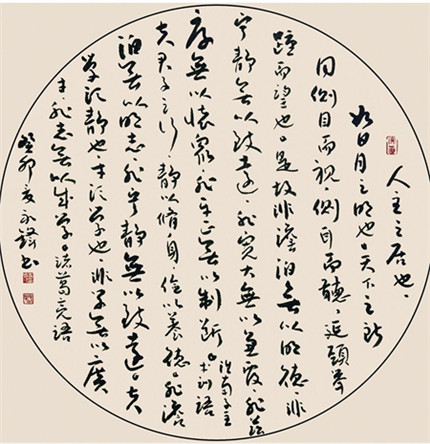 人主之居也、
如日月之明也。天下之所
同側目而視、側耳而聽、延頸舉
踵而望也。是故非澹泊無以明德、非
寧靜無以致遠、非寬大無以兼覆、非慈
厚無以懷眾、非平正無以制斷。淮南子主
术训語
夫君子之行、静以脩身、儉以養德。非澹
泊無以明志、非寧静無以致遠。夫
學須静也、才須學也、非學無以廣
才、非志無以成學。諸葛亮語
癸卯夏永鋒書